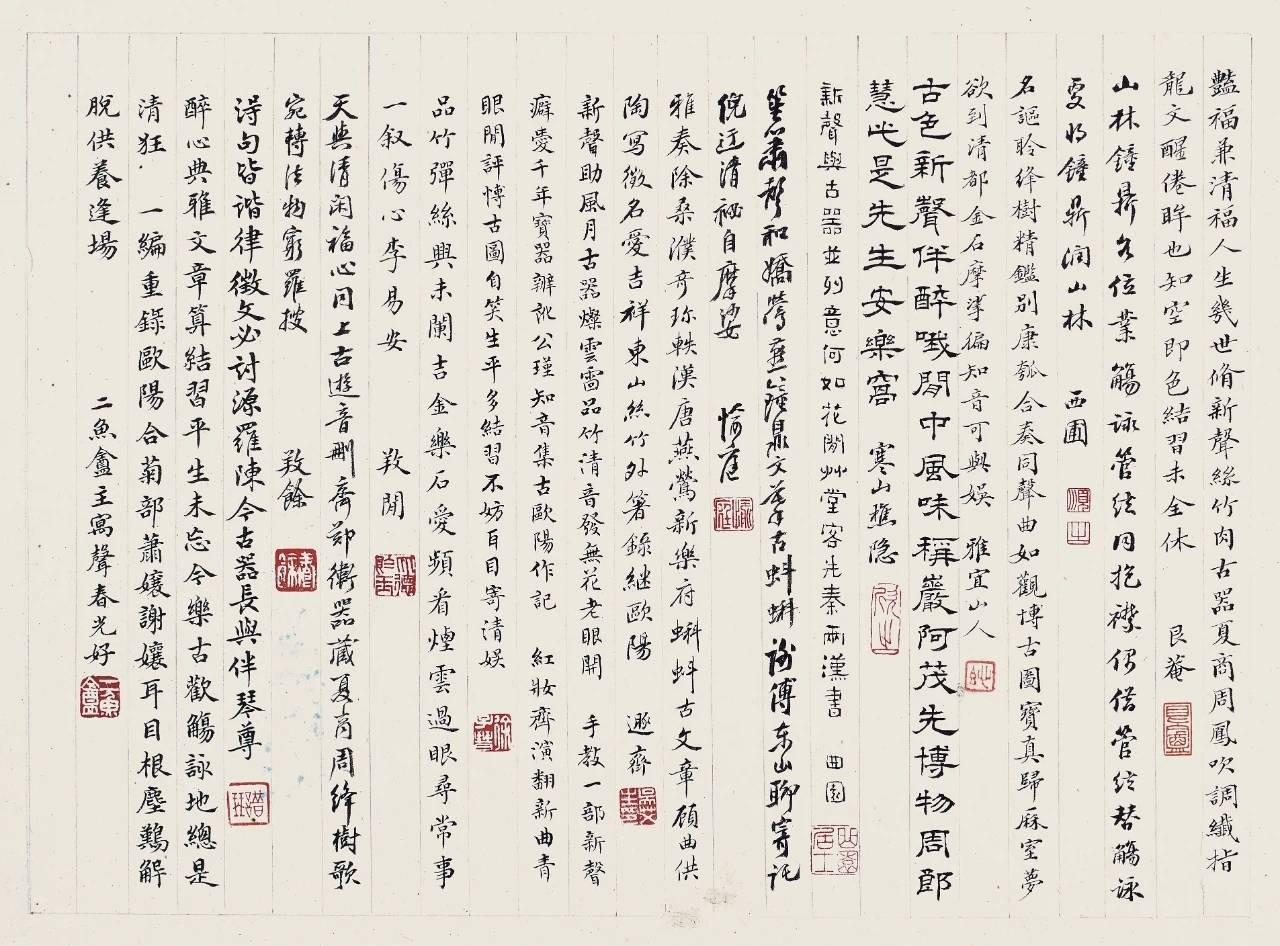 豔福兼清福人生幾世脩新聲絲竹肉古器夏商周鳳吹調纖指
龍文醒倦眸也知空即色結習未全休 艮菴
山林鐘鼎各位業觴詠管弦同抱襟偶借管弦替觴詠
更將鐘鼎潤山林 西圃
名謳聆絳樹精鑑別康瓠合奏同聲曲如觀博古圖寶真歸麻室夢
欲到清都金石摩挲徧知音可與娛 雅宜山人
古色新聲伴醉哦閒中風味稱巖阿茂先博物周郎
慧此是先生安樂窩 寒山樵隱
新聲與古器並列意何如花閒艸堂客先秦兩漢書 曲園
笙簫聲和嬌鶯燕鐘鼎文摹古蝌蚪謝傅東山聊寄託
倪迂清祕自摩挲 愉庭
雅奏除桑濮奇珍軼漢唐燕鶯新樂府蝌蚪古文章顧曲供
陶寫徵名愛吉祥東山絲竹外著錄繼歐陽 遯齋
新聲助風月古器燦雲雷品竹清音發無花老眼開 手教一部新聲
癖愛千年寶器辦訛公瑾知音集古歐陽作記 紅妝齊演翻新曲青
眼閒評博古圖自笑生平多結習不妨百目寄清娛
品竹彈絲興未闌吉金樂石愛頻看煙雲過眼尋常事
一叙傷心李易安 敩閒
天與清閑福心同上古遊音刪齊鄭衛器藏夏商周絳樹歌
宛轉法物窮羅搜 敩餘
得句皆諧律徵文必討源羅陳今古器長與伴琴尊
醉心典雅文章算結習平生未忘今樂古歡觴詠地總是
清狂 一編重錄歐陽合菊部蕭孃謝孃耳目根塵難解
脫供養逢場 二魚盦主寓聲春光好